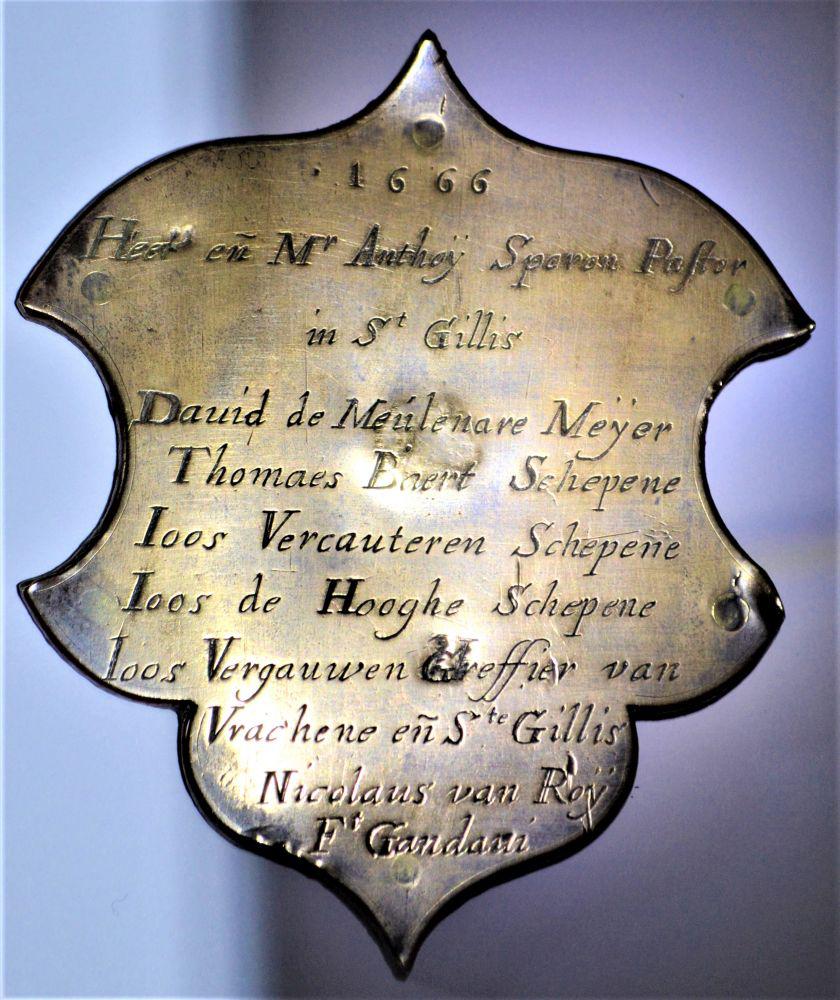 1666
Heer en̄ Mr Anthoÿ Speron Paſtor
in St Gillis
Dauid de Meúlenare Meÿer
Thomaes Baert Schepene
Ioos Vercauteren Schepene
Ioos de Hooghe Schepene
Ioos Vergauwen Greffier van
Vrachene en̄ Ste Gillis
Nicolaus van Roÿ
Ft Gandaui